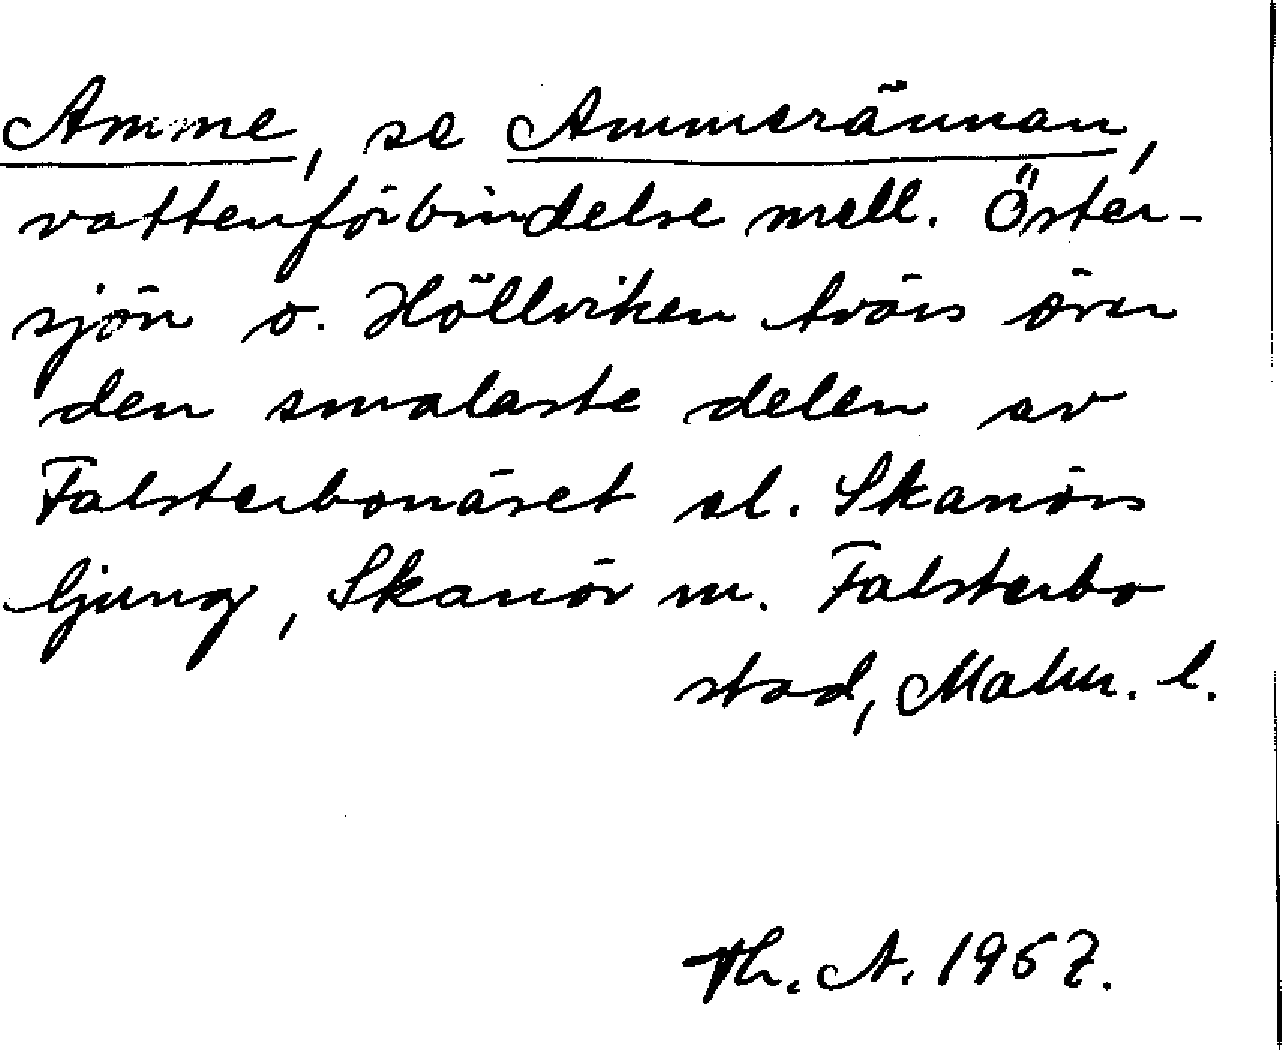 Amme, se Ammerännan,
vattenförbindelse mell. Öster-
sjön o. Höllviken tvärs över
den smalaste delen av
Falsterbonäset el. Skanörs
ljung, Skanör m. Falsterbo
stad, Malm. l.
Th. A. 1957.